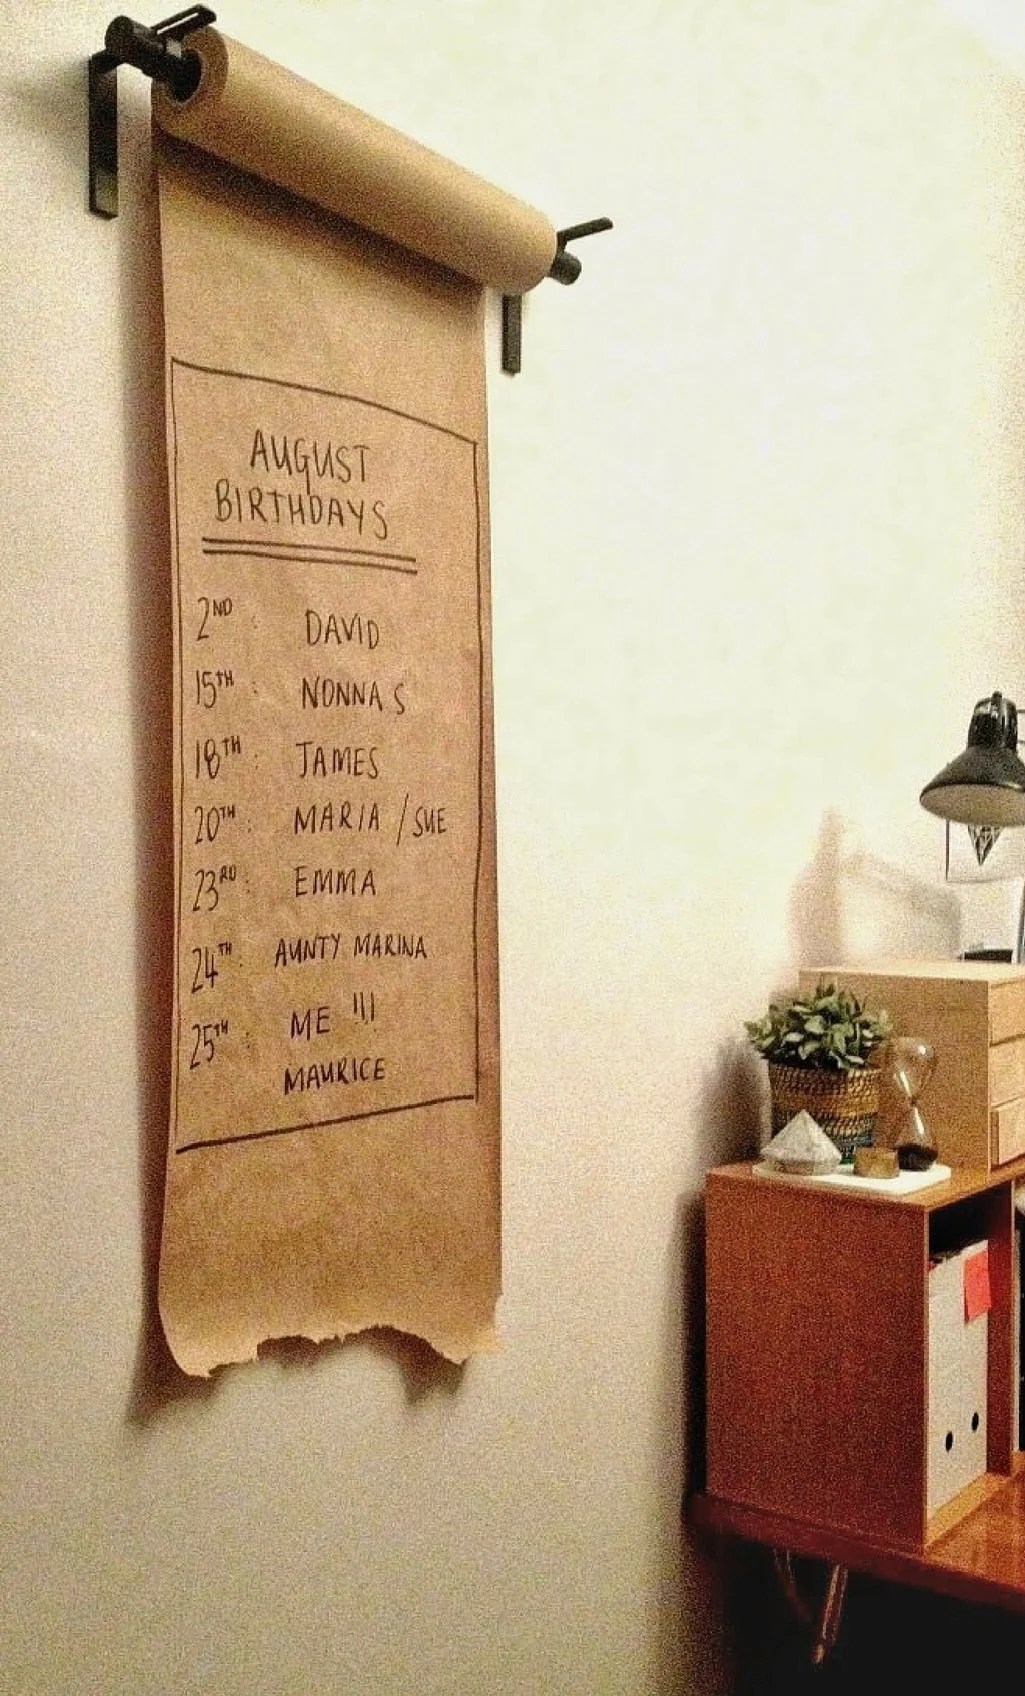 AUGUST
BIRTHDAYS
2ND : DAVID
15TH : NONNA S
18TH : JAMES
20TH : MARIA / SUE
23RD : EMMA
24TH : AUNTY MARINA
25TH : ME !!!
MAURICE